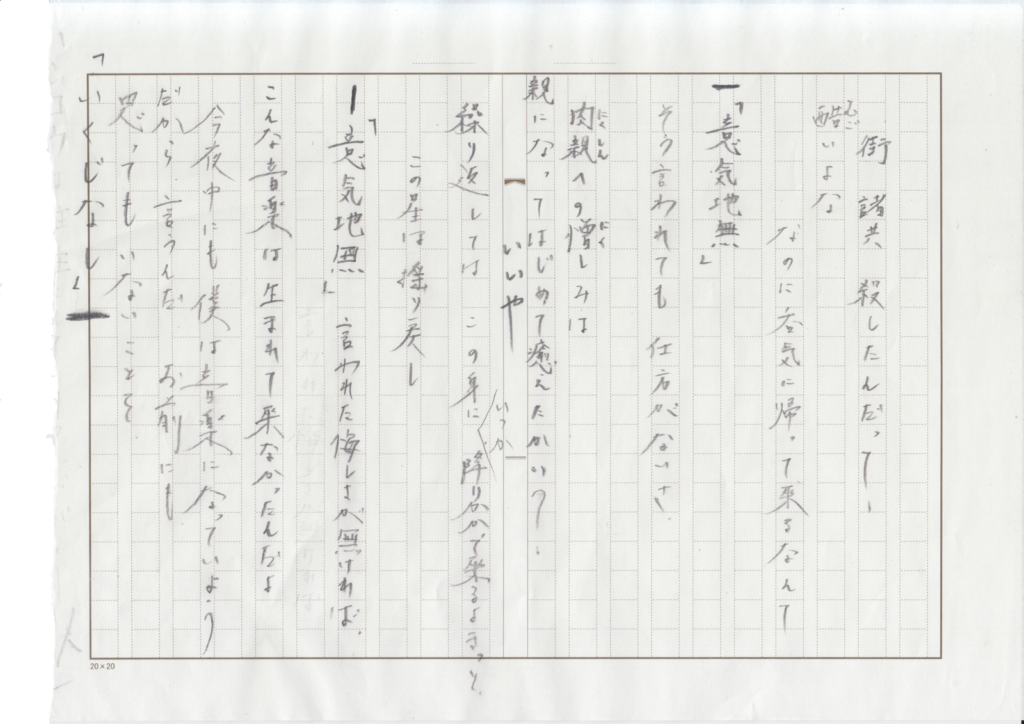 街 諸共 殺したんだって、
酷いよな
むご
なのに呑気に帰って来るなんて
ー「意気地無」
そう言われても 仕方がないさ
肉親への憎しみは
にくしん
にく
親になってはじめて癒えたかい?
いいや
繰り返しては この身に 降りかかって来るよ きっと、
いつか
この星は 揺り戻し
ー「意気地無」 言われた悔しさが無ければ、
こんな音楽は 生まれて来なかったんだよ
今夜中にも 僕は音楽になっていよう
だから 言うんだ お前にも
思ってもいないことを
「いくじなし」ー
20×20